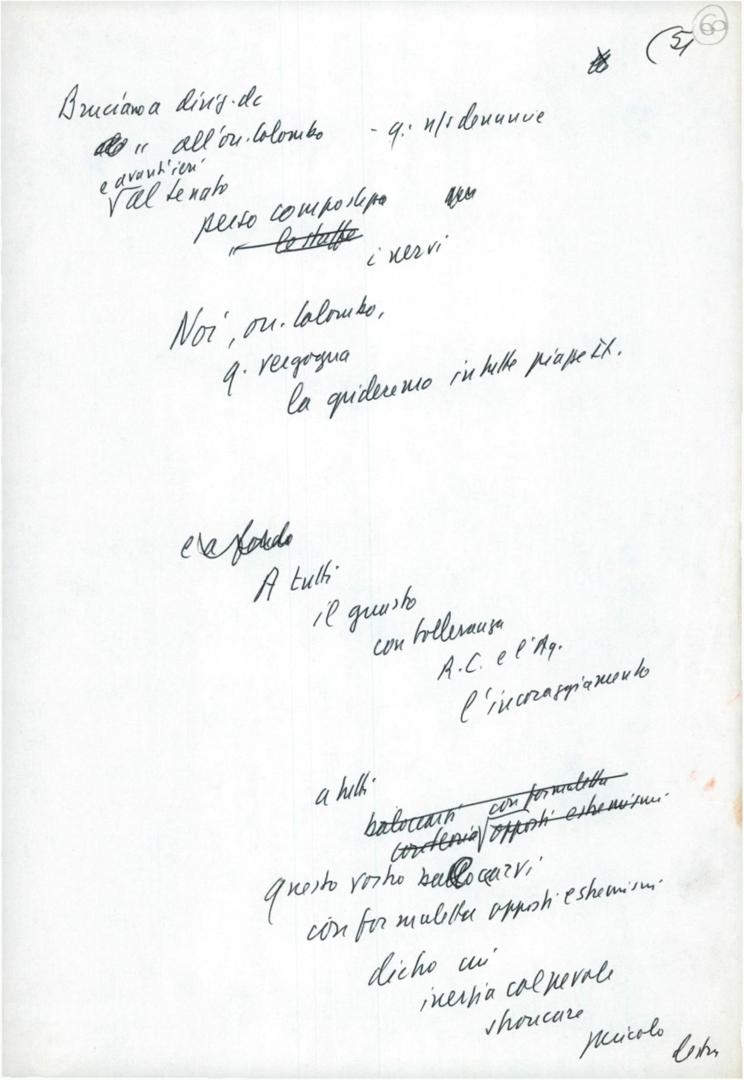 (5) 60
Bruciano a dirig. dc
" all'on. Colombo - q. n/s denuncie
e avant'ieri
al Senato
perso compostezza
" le staffe
i nervi
Noi, on. Colombo,
q. vergogna
la grideremo in tutte piazze It.
e a fondo
A tutti
il guasto
con tolleranza
R.C. e l'Aq.
l'incoraggiamento
a tutti
baloccarsi con formuletta
opposti estremismi
questo vostro baloccarvi
con formuletta opposti estremismi
dietro cui
inerzia colpevole
stroncare
pericolo destra